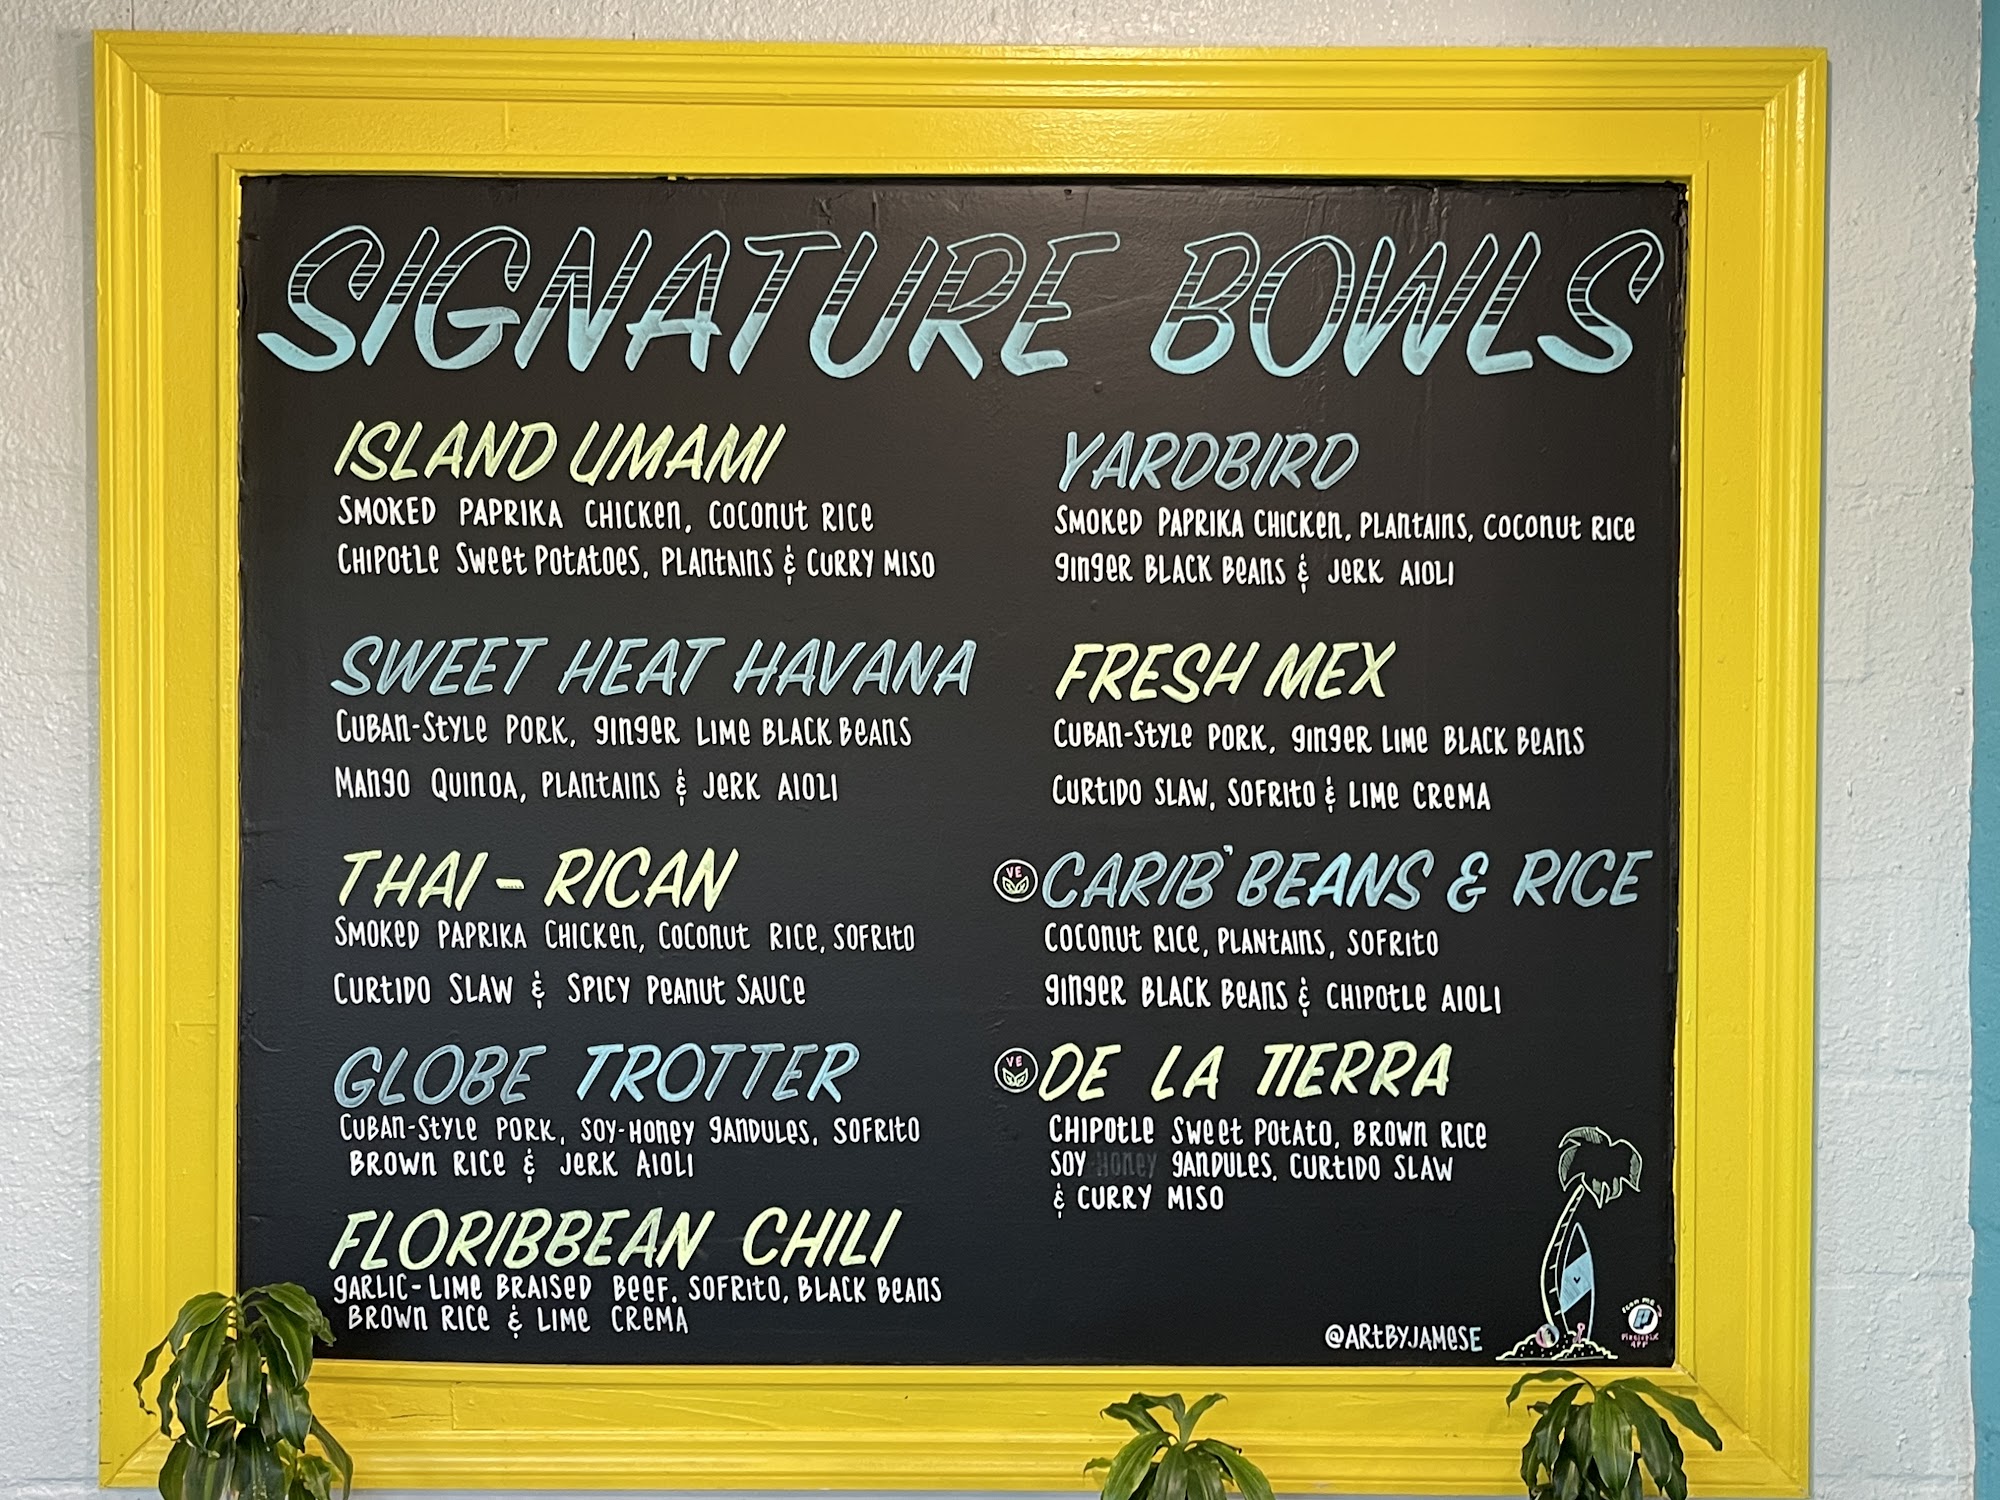 SIGNATURE BOWLS
ISLAND UMAMI
SMOKED PAPRIKA CHICKEN, COCONUT RICE
CHIPOTLE SWEET POTATOES, PLANTAINS & CURRY MISO
SWEET HEAT HAVANA
CUBAN-STYLE PORK, GINGER LIME BLACK BEANS
MANGO QUINOA, PLANTAINS & JERK AIOLI
THAI-RICAN
SMOKED PAPRIKA CHICKEN, COCONUT RICE, SOFRITO
CURTIDO SLAW & SPICY PEANUT SAUCE
GLOBE TROTTER
CUBAN-STYLE PORK, SOY-HONEY GANDULES, SOFRITO
BROWN RICE & JERK AIOLI
FLORIBBEAN CHILI
GARLIC-LIME BRAISED BEEF, SOFRITO, BLACK BEANS
BROWN RICE & LIME CREMA
YARDBIRD
SMOKED PAPRIKA CHICKEN, PLANTAINS, COCONUT RICE
GINGER BLACK BEANS & JERK AIOLI
FRESH MEX
CUBAN-STYLE PORK, GINGER LIME BLACK BEANS
CURTIDO SLAW, SOFRITO & LIME CREMA
VE CARIB'BEANS & RICE
COCONUT RICE, PLANTAINS, SOFRITO
GINGER BLACK BEANS & CHIPOTLE AIOLI
VE DE LA TIERRA
CHIPOTLE SWEET POTATO, BROWN RICE
SOY HONEY GANDULES, CURTIDO SLAW
& CURRY MISO
@ARTBYJAMESE
SCAN ME
P
APP